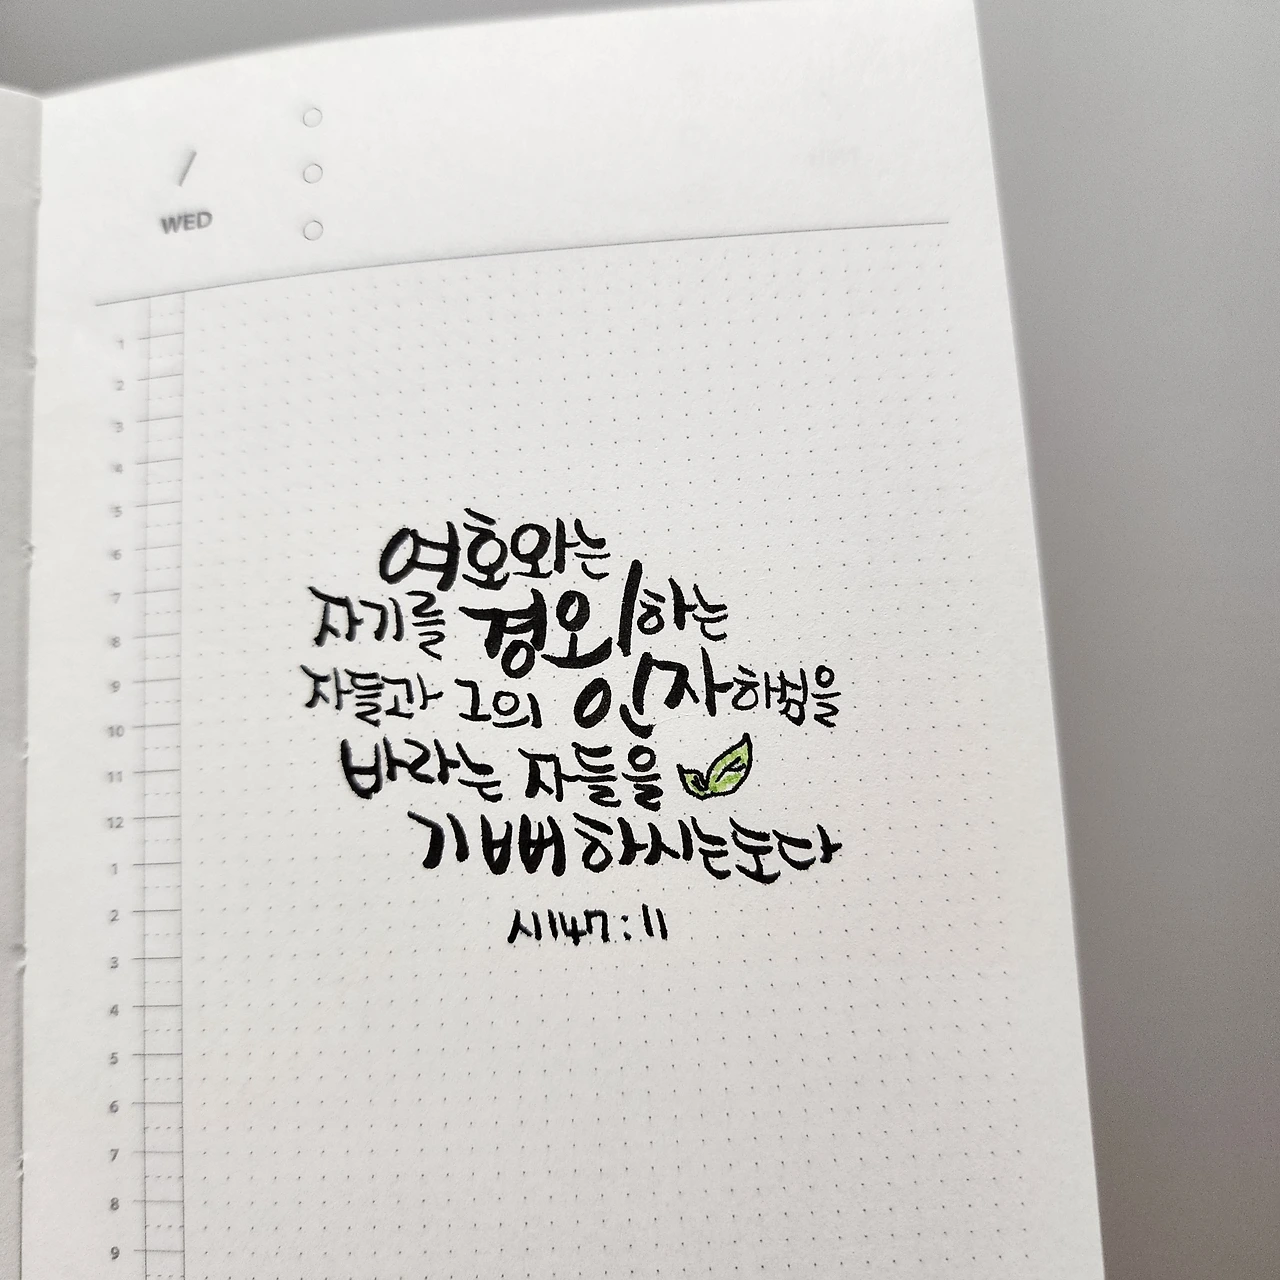 /
WED
여호와는
자기를 경외하는
자들과 그의 인자하심을
바라는 자들을
기뻐하시는도다
시147:11
1
2
3
4
5
6
7
8
9
10
11
12
1
2
3
4
5
6
7
8
9